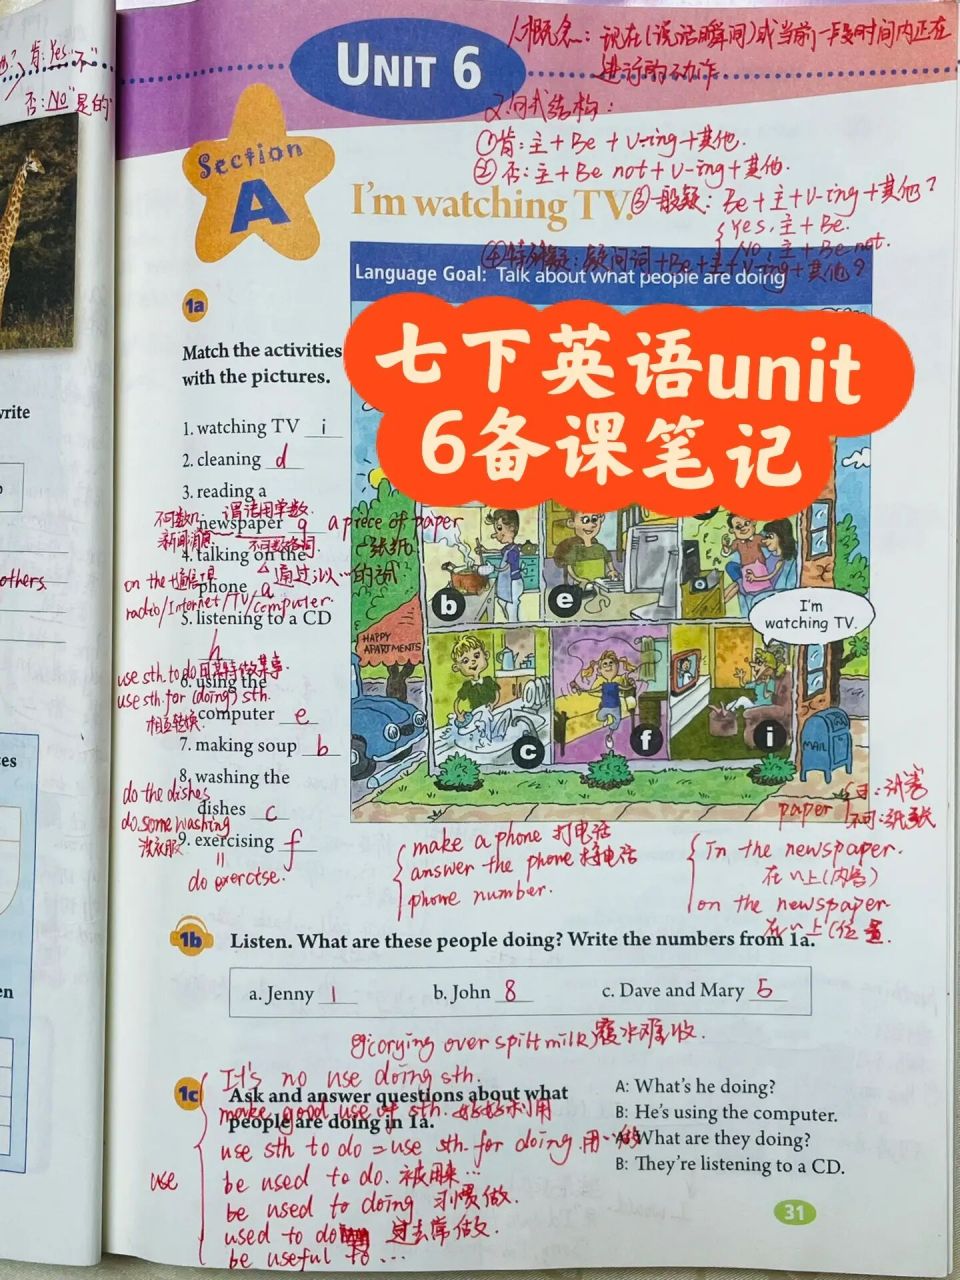 肯: Yes "不"
否: No "是的"
UNIT 6
1、概念: 现在(说话瞬间)或当前一段时间内正在
进行的动作
2、句式结构:
①肯: 主 + Be + V-ing + 其他.
②否: 主 + Be not + V-ing + 其他.
③一般疑: Be + 主 + V-ing + 其他?
Yes, 主 + Be.
No 主 + Be not.
④特殊疑: 疑问词 + Be + 主 + V-ing + 其他?
Section
A
I'm watching TV.
Language Goal: Talk about what people are doing
七下英语unit
6备课笔记
1a
Match the activities
with the pictures.
1. watching TV i
2. cleaning d
3. reading a
不可数n: 谓语用单数.
newspaper g a piece of paper
新闻消息 不可数名词. 一张纸
4. talking on the
phone a 通过以…的话
on the + 通信工具
radio/Internet/TV/computer.
5. listening to a CD
h
use sth. to do 用某物做某事.
6. using the
use sth. for (doing) sth.
computer e
相互转换.
7. making soup b
8. washing the
do the dishes
dishes c
do some washing
洗衣服
9. exercising f
=
do exercise.
b
e
HAPPY
APARTMENTS
I'm
watching TV.
c
f
i
MAIL
make a phone 打电话
answer the phone 接电话
phone number.
paper 可: 试卷
不可: 纸张
In the newspaper.
在…上(内容)
on the newspaper
在…上(位置.
1b
Listen. What are these people doing? Write the numbers from 1a.
a. Jenny 1 b. John 8 c. Dave and Mary 5
(crying over spilt milk) 覆水难收.
1c
It's no use doing sth.
Ask and answer questions about what
people are doing in 1a.
make good use of sth. 好好利用
use sth to do = use sth. for doing 用…做
use
be used to do. 被用来…
be used to doing 习惯做.
used to do 过去常做.
be useful to …
A: What's he doing?
B: He's using the computer.
A: What are they doing?
B: They're listening to a CD.
31
write
others